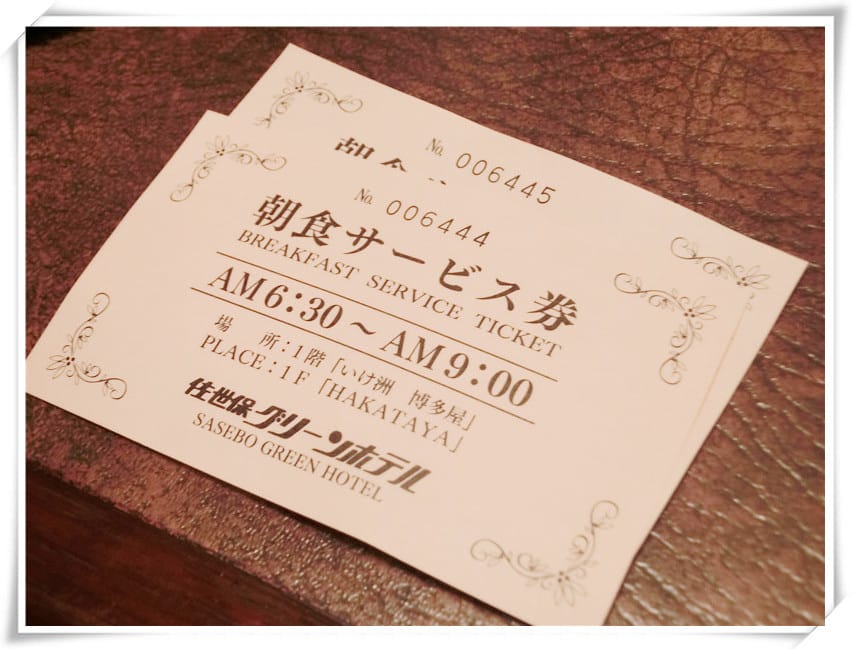 No. 006445
No. 006444
朝食サービス券
BREAKFAST SERVICE TICKET
AM6:30～AM9:00
場　所：1階「いけ洲　博多屋」
PLACE：1F「HAKATAYA」
佐世保グリーンホテル
SASEBO GREEN HOTEL